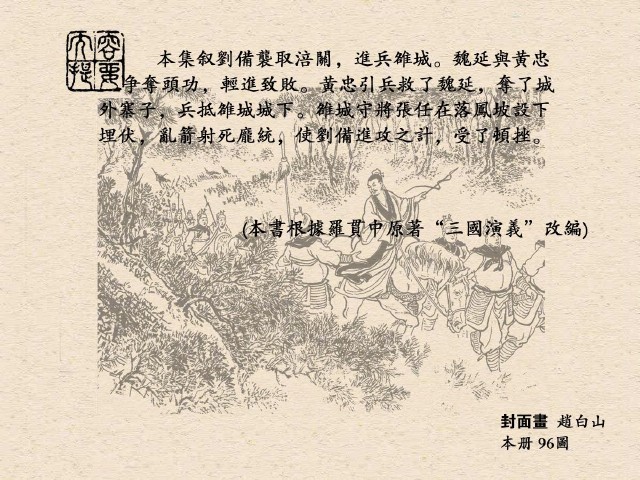 內容提要
本集叙劉備襲取涪關，進兵雒城。魏延與黄忠
争奪頭功，輕進致敗。黄忠引兵救了魏延，奪了城
外寨子，兵抵雒城城下。雒城守將張任在落鳳坡設下
埋伏，亂箭射死龐統，使劉備進攻之計，受了頓挫。
(本書根據羅貫中原著“三國演義”改編)
封面畫 趙白山
本册 96圖